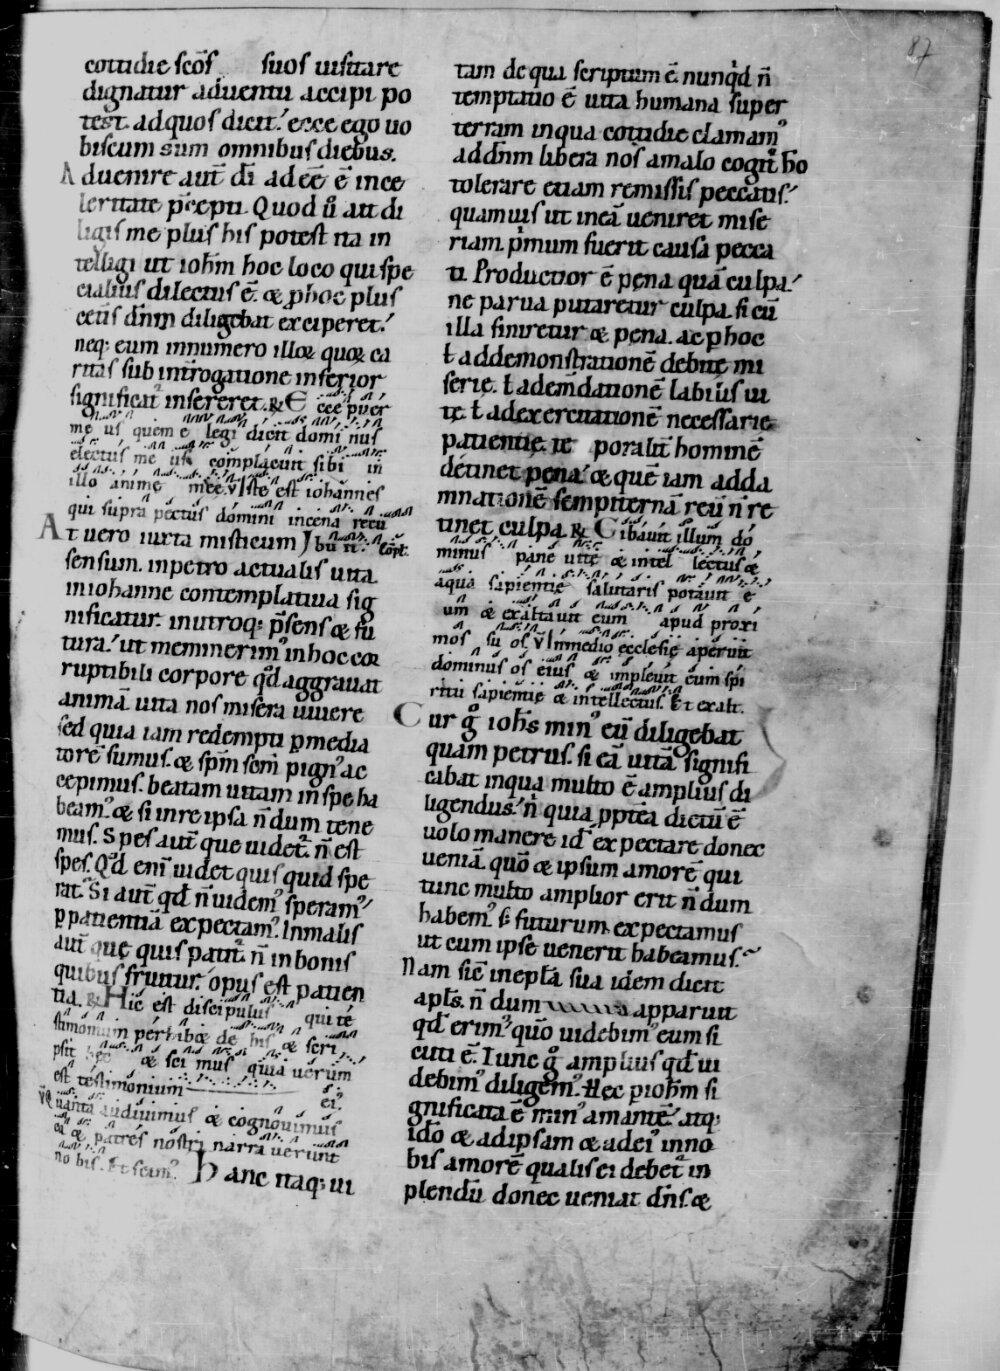 87
cottidie scōs suos uisitare
dignatur aduentu accipi po
test. ad quos dicit: ecce ego uo
biscum sum omnibus diebus.
Aduenire aut̄ dī ad eē ē in ce
leritate p̄cepti. Quod ū ait di
ligis me plus his potest ita in
telligi ut ioh̄m hoc loco qui spe
cialius dilectus ē. & p hoc plus
ceteris dn̄m diligebat exciperet.
neq; eum in numero illoꝝ quoꝝ ca
ritas sub int̄rogatione inferior
significat᷑ insereret. ℞ Ecce puer
meus quem elegi dicit dominus
electus meus complacuit sibi in
illo anime mee. V̄ Iste est iohannes
qui supra pectus domini in cena recu
At uero iuxta misticum buit. Cōpl.
sensum. in petro actualis uita
in iohanne contemplatiua sig
nificatur. in utroq; p̄sens & fu
tura. ut meminerim᷒ in hoc cor
ruptibili corpore qd̄ aggrauat
animā uita nos misera uiuere
sed quia iam redempti p media
torē sumus. & sp̄m scm̄ pign᷒ ac
cepimus. beatam uitam in spe ha
beam᷒. & si in re ipsa n̄dum tene
mus. Spes aut̄ que uidet᷑ n̄ est
spes. Qd̄ enī uidet quis quid spe
rat? Si aut̄ qd̄ n̄ uidem᷒ speram᷒
p patientiā expectam᷒. In malis
aut̄ quę quis patit᷑. n̄ in bonis
quibus fruitur. opus est patien
tia. ℞ Hic est discipulus qui te
stimonium perhib& de his & scri
psit hęc & scimus quia uerum
est testimonium ei᷒.
V̄ Quanta audiuimus & cognouimus
ea & patres nostri narrauerunt
nobis. Et scim᷒. Hanc itaq; ui
tam de qua scriptum ē. nunqd̄ n̄
temptatio ē uita humana super
terram in qua cottidie clamam᷒
ad dn̄m libera nos a malo cogit᷑ hō
tolerare etiam remissis peccatis.
quamuis ut in eā ueniret mise
riam. p̄mum fuerit causa pecca
ti. Productior ē pęna quā culpa.
ne parua putaretur culpa. si cū
illa finiretur & pęna. ac p hoc
ł ad demonstrationē debitę mi
serię. ł ad em̄dationē labilis ui
tę. ł ad exercitationē necessarię
patientię. te poralit̄ hominē
detinet pęna. & quē iam ad da
mnationē sempiternā reū n̄ re
tinet culpa. ℞ Cibauit illum do
minus pane uitę & intellectus &
aqua sapientię salutaris potauit e
um & exaltauit eum apud proxi
mos suos. V̄ In medio ecclesię aperuit
dominus os eius & impleuit eum spi
ritu sapientię & intellectus. Et exalt.
Cur g̊ ioh̄s min᷒ eū diligebat
quam petrus. si eā uitā signifi
cabat in qua multo ē amplius di
ligendus. n̄ quia ppt̄ea dictū ē
uolo manere id̄ expectare donec
ueniā. quō & ipsum amorē qui
tunc multo amplior erit n̄dum
habem᷒ s̄ futurum. expectamus
ut cum ipse uenerit habeamus.
Nam sic̄ in epl̄a sua idem dicit
apl̄s. n̄ dum apparuit
qd̄ erim᷒. quō uidebim᷒ eum si
cuti ē. Tunc g̊ amplius qd̄ ui
debim᷒ diligem᷒. Hęc p ioh̄m si
gnificata ē min᷒ amantē. atq;
id̄o & ad ipsam & ad ei᷒ in no
bis amorē qualis ei debet᷑ in
plendū donec ueniat dn̄s. &